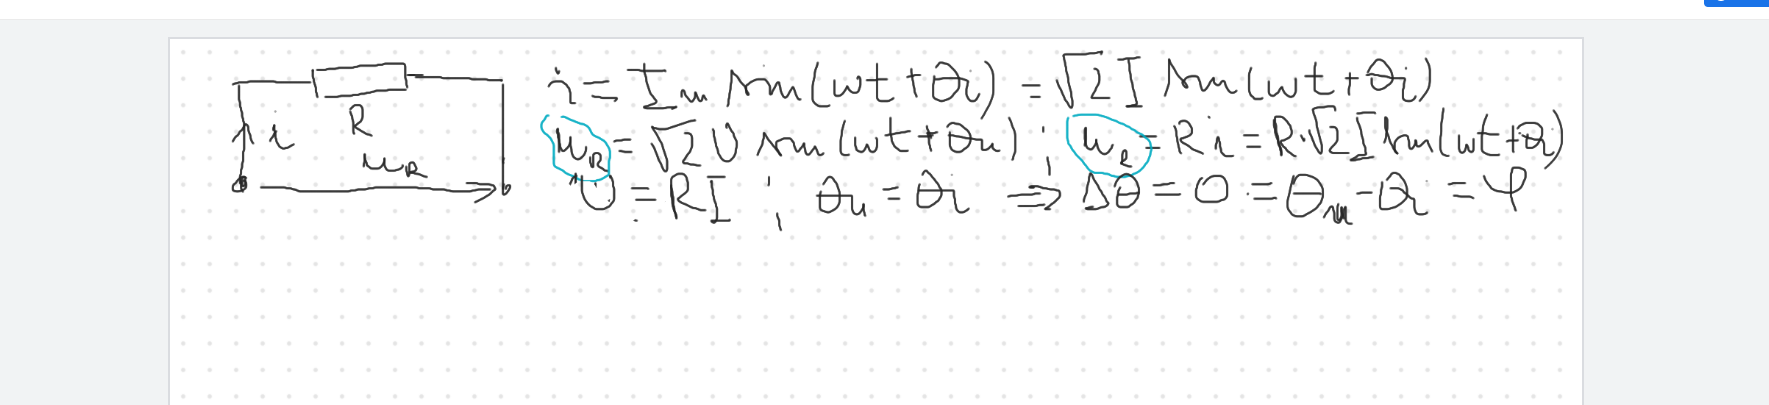 R
i
u_R
i = I_m sin(ωt + θi) = √2 I sin(ωt + θi)
u_R = √2 U sin(ωt + θu) ; u_R = Ri = R·√2 I sin(ωt + θi)
U = RI ; θu = θi ⇒ Δθ = 0 = θu - θi = φ